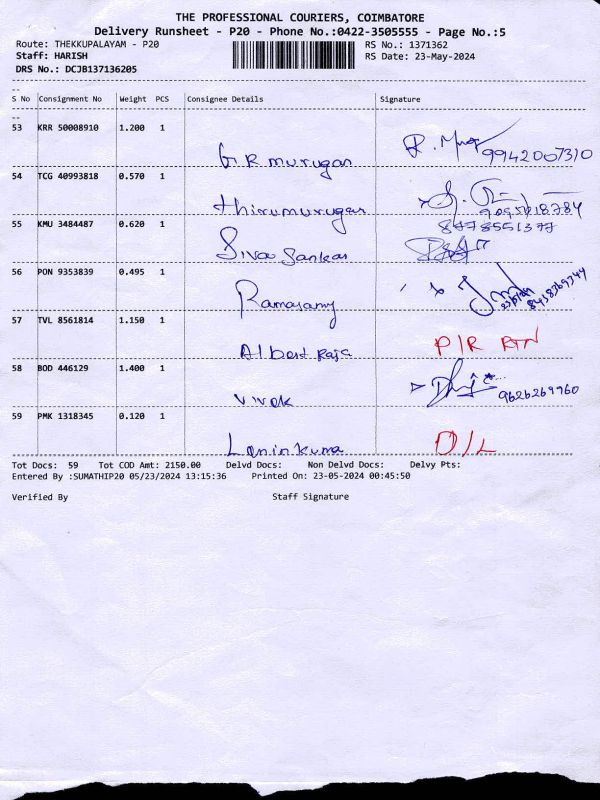 THE PROFESSIONAL COURIERS, COIMBATORE
Delivery Runsheet - P20 - Phone No.:0422-3505555 - Page No.:5
Route: THEKKUPALAYAM - P20
RS No.: 1371362
Staff: HARISH
RS Date: 23-May-2024
DRS No.: DCJB137136205
S No Consignment No Weight PCS Consignee Details Signature
53 KRR 50008910 1.200 1
G R murugan R. 9942007310
54 TCG 40993818 0.570 1
thirumurugan 9095618784
55 KMU 3484487 0.620 1
8778551377
Siva Sankar
56 PON 9353839 0.495 1
Ramasamy
57 TVL 8561814 1.150 1
Albert Raja P/R RTN
58 BOD 446129 1.400 1
Vivek 9626269960
59 PMK 1318345 0.120 1
Lenin kuma D/L
Tot Docs: 59 Tot COD Amt: 2150.00 Delvd Docs: Non Delvd Docs: Delvy Pts:
Entered By :SUMATHIP20 05/23/2024 13:15:36 Printed On: 23-05-2024 00:45:50
Verified By Staff Signature